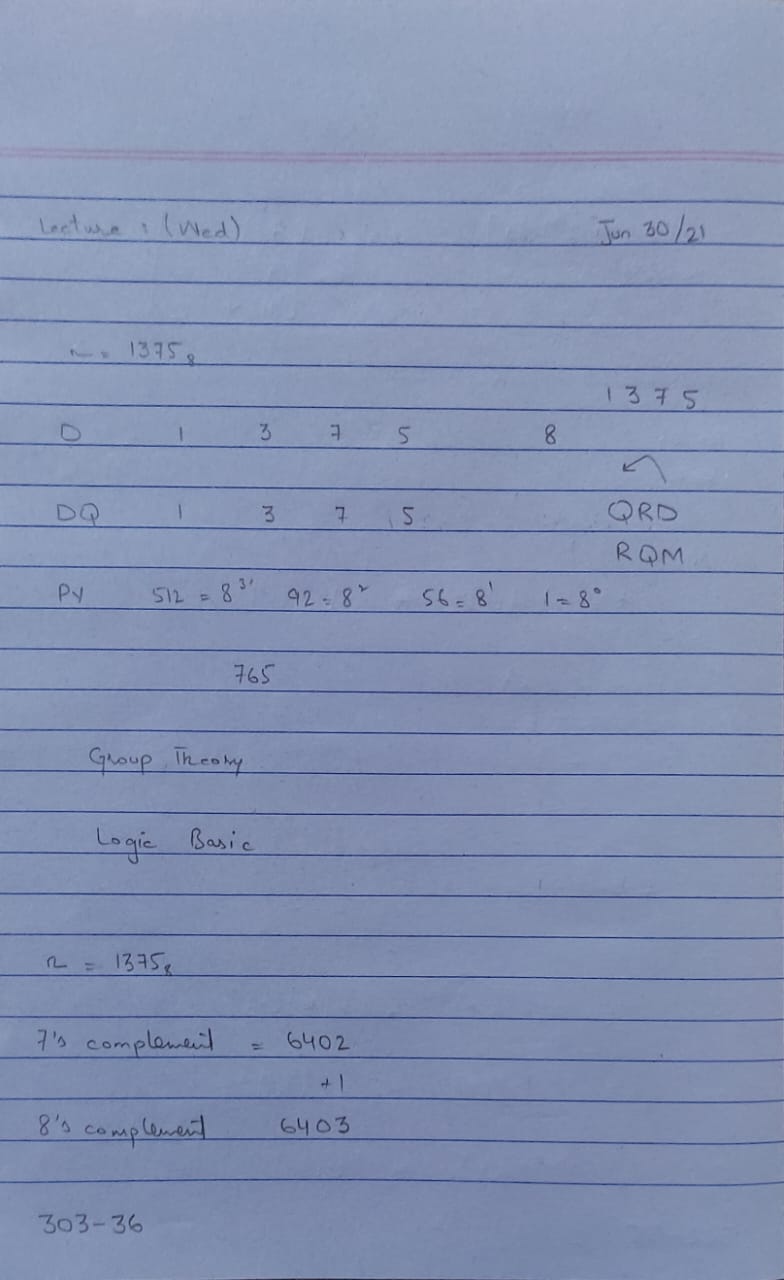 Lecture : (Wed) Jun 30/21
n = 1375₈
1 3 7 5
D 1 3 7 5 8
DQ 1 3 7 5 QRD
RQM
PV 512 = 8³' 92 = 8² 56 = 8¹ 1 = 8⁰
765
Group Theory
Logic Basic
n = 1375₈
7's complement = 6402
+1
8's complement 6403
303-36